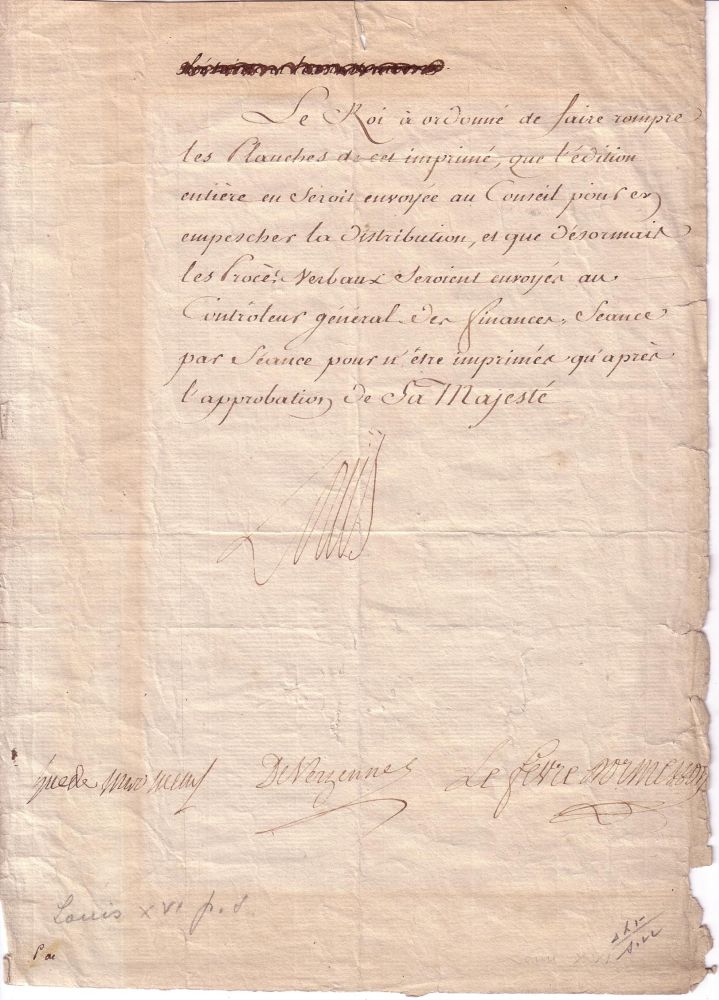 Le Roi à ordonné de faire rompre
les Planches de cet imprimé, que l'édition
entière en Seroit envoyée au Conseil pour en
empescher la distribution, et que désormais
les Procès Verbaux Seroient envoyés au
Contrôleur général des finances, Séance
par Séance pour n'être imprimés qu'après
l'approbation de Sa Majesté
Louis
hue de miromenil
De Vergennes
Le fevre dormesson
Louis XVI p. s.